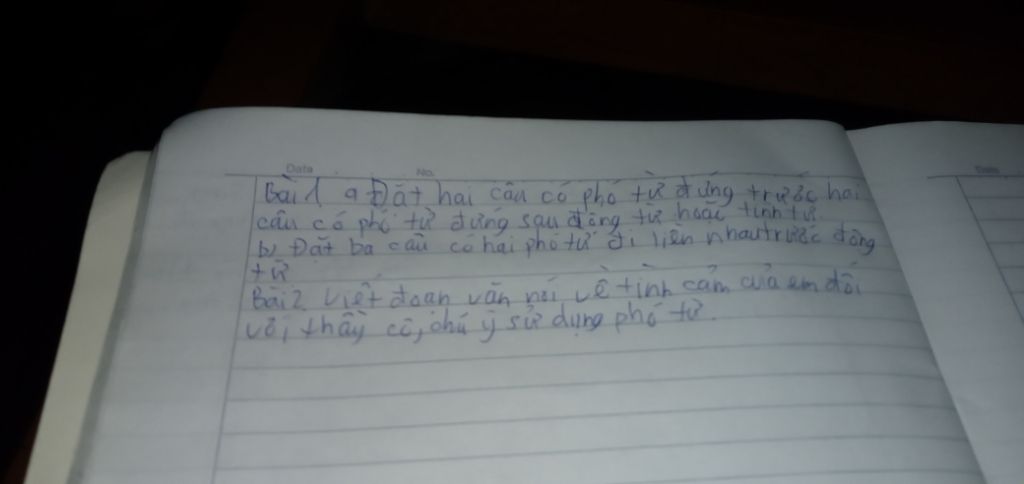 Date No. Date
Bài 1 a Đặt hai câu có phó từ đứng trước hai
câu có phó từ đứng sau động từ hoặc tính từ
b, Đặt ba câu có hai phó từ đi liên nhau trước động
từ
Bài 2 Viết đoạn văn nói về tình cảm của em đối
với thầy cô, chú ý sử dụng phó từ.